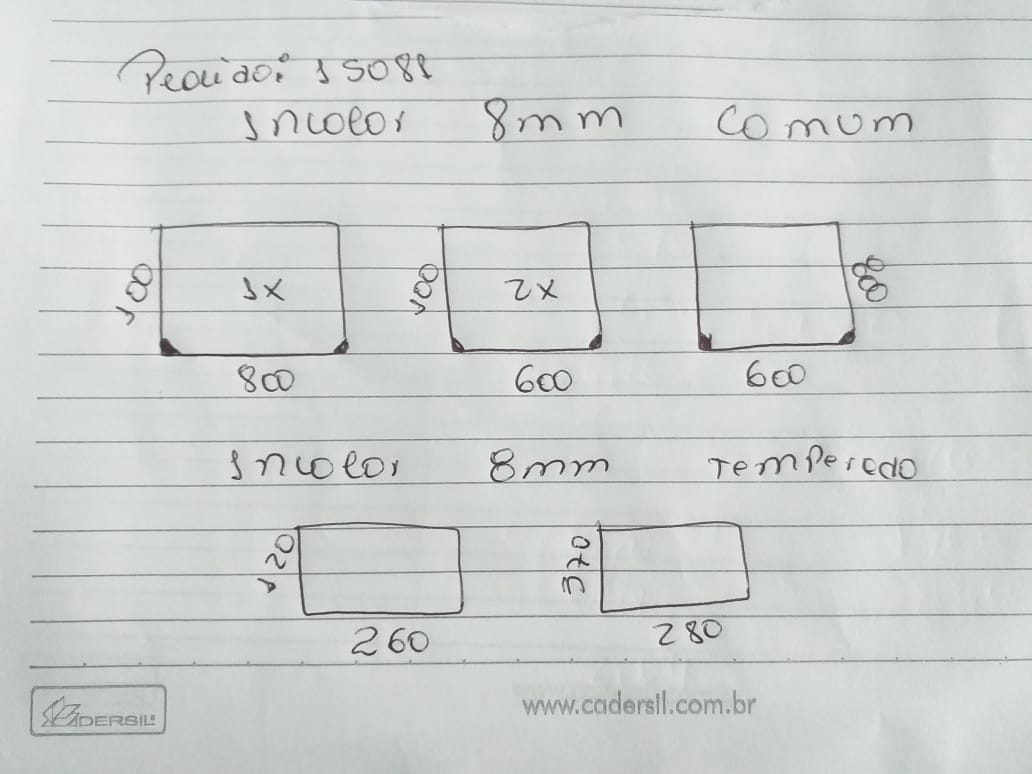 Pedido: 15088
Incolor 8mm Comum
100 1x 100 2x 800
800 600 600
Incolor 8mm Temperado
120 370
260 280
CADERSIL
www.cadersil.com.br